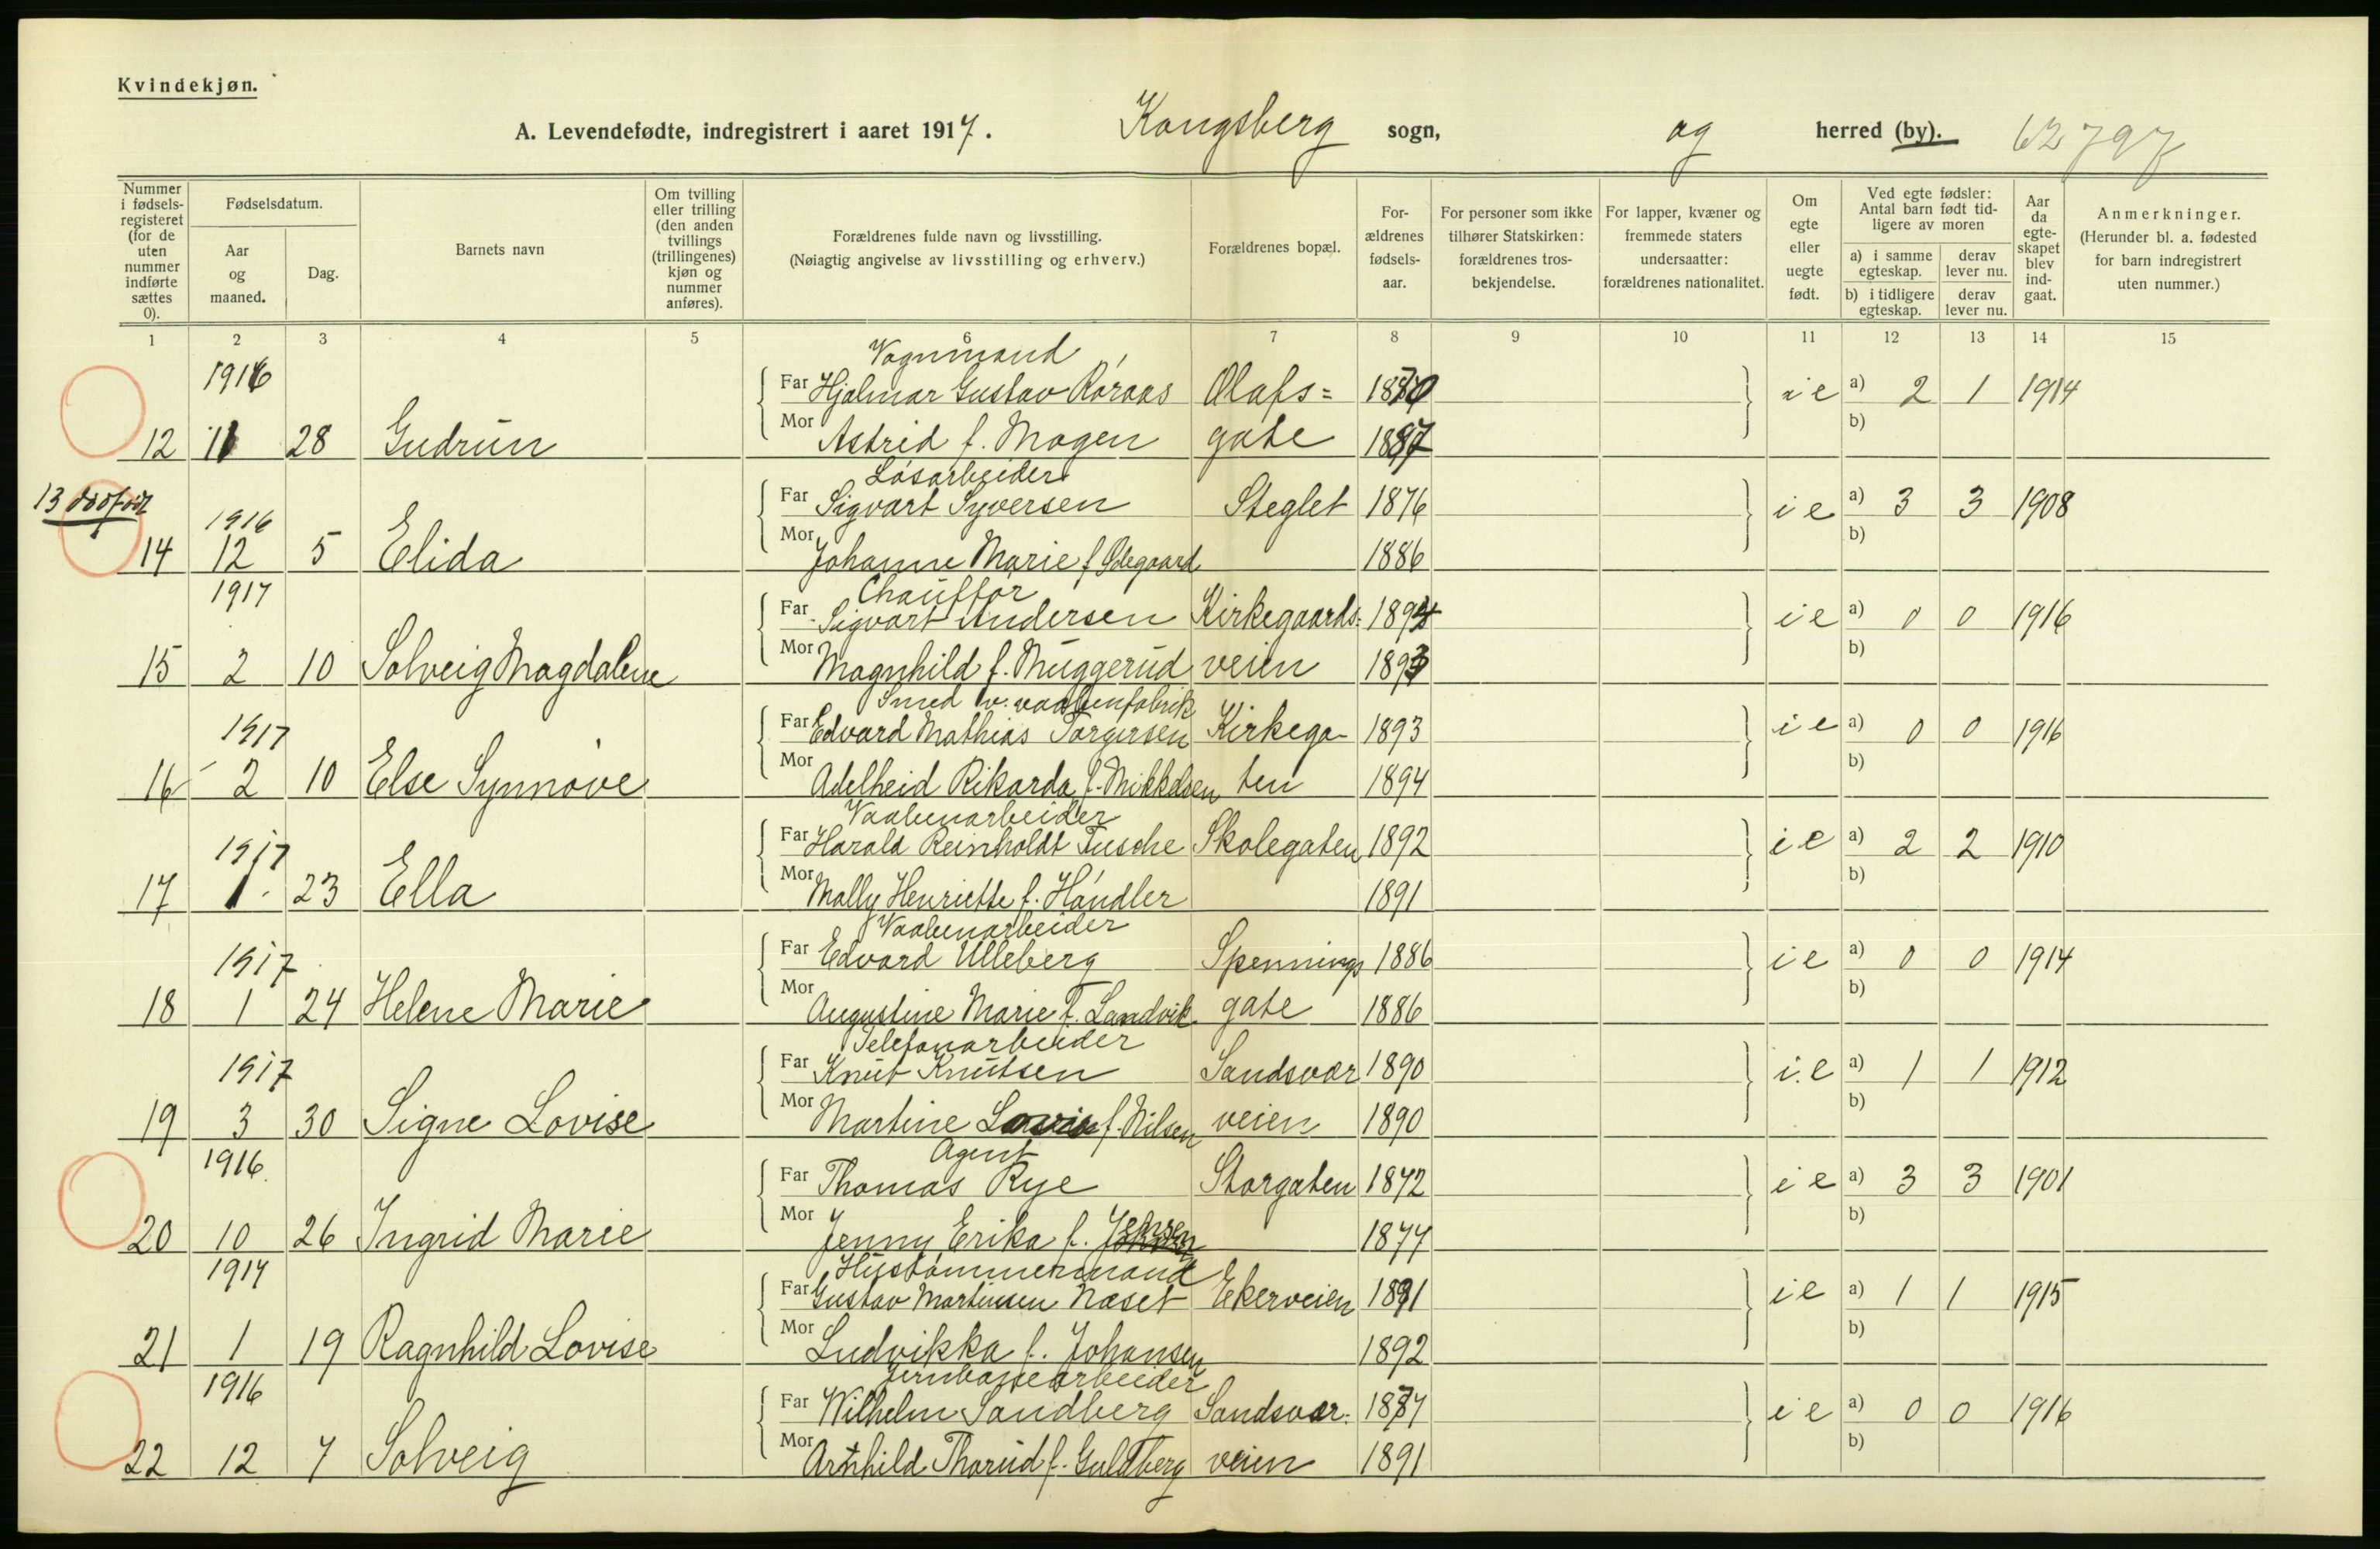 Kvindekjøn.
A. Levendefødte, indregistrert i aaret 1917. Kongsberg sogn, og herred (by). 62797
Nummer i fødsels-registeret (for de uten nummer indførte sættes 0).
Fødselsdatum.
Aar og maaned.
Dag.
Barnets navn
Om tvilling eller trilling (den anden tvillings (trillingenes) kjøn og nummer anføres).
Forældrenes fulde navn og livsstilling.
(Nøiagtig angivelse av livsstilling og erhverv.)
Forældrenes bopæl.
For-ældrenes fødsels-aar.
For personer som ikke tilhører Statskirken: forældrenes tros-bekjendelse.
For lapper, kvæner og fremmede staters undersaatter: forældrenes nationalitet.
Om egte eller uegte født.
Ved egte fødsler: Antal barn født tid-ligere av moren
a) i samme egteskap. derav lever nu.
b) i tidligere egteskap. derav lever nu.
Aar da egte-skapet blev ind-gaat.
Anmerkninger.
(Herunder bl. a. fødested for barn indregistrert uten nummer.)
1 2 3 4 5 6 7 8 9 10 11 12 13 14 15
Vognmand
1916 Far Hjalmar Gustav Roraas Olafs= 1870 ie a) 2 1 1914
12 11 28 Gudrun Mor Astrid f. Mogen gate 1887 b)
Løsarbeider
13 dødfødt
1916 Far Sigvart Syversen Steglet 1876 ie a) 3 3 1908
14 12 5 Elida Mor Johanne Marie f Ødegaard 1886 b)
Chauffør
1917 Far Sigvart Andersen Kirkegaards- 1894 ie a) 0 0 1916
15 2 10 Solveig Magdalene Mor Magnhild f. Muggerud veien 1893 b)
Smed v. vaabenfabrik
1917 Far Edvard Mathias Torgersen Kirkega- 1893 ie a) 0 0 1916
16 2 10 Else Synnøve Mor Adelheid Rikarda f. Mikkelsen ten 1894 b)
Vaabenarbeider
1917 Far Harald Reinholdt Tusche Skolegaten 1892 ie a) 2 2 1910
17 1 23 Ella Mor Molly Henriette f. Handler 1891 b)
Vaabenarbeider
1917 Far Edvard Ulleberg Spennings 1886 ie a) 0 0 1914
18 1 24 Helene Marie Mor Augustine Marie f. Landvik gate 1886 b)
Telefonarbeider
1917 Far Knut Knutsen Sandsvær 1890 i.e a) 1 1 1912
19 3 30 Signe Lovise Mor Martine Lovise f. Nilsen veien 1890 b)
Agent
1916 Far Thomas Rye Storgaten 1872 ie a) 3 3 1901
20 10 26 Ingrid Marie Mor Jenny Erika f. Jensen 1877 b)
Hustømmermand
1917 Far Gustav Martinsen Næset Ekerveien 1891 ie a) 1 1 1915
21 1 19 Ragnhild Lovise Mor Ludvikka f. Johansen 1892 b)
Jernbanearbeider
1916 Far Wilhelm Sandberg Sandsvær. 1887 ie a) 0 0 1916
22 12 7 Solveig Mor Arnhild Thorud f. Guldberg veien 1891 b)